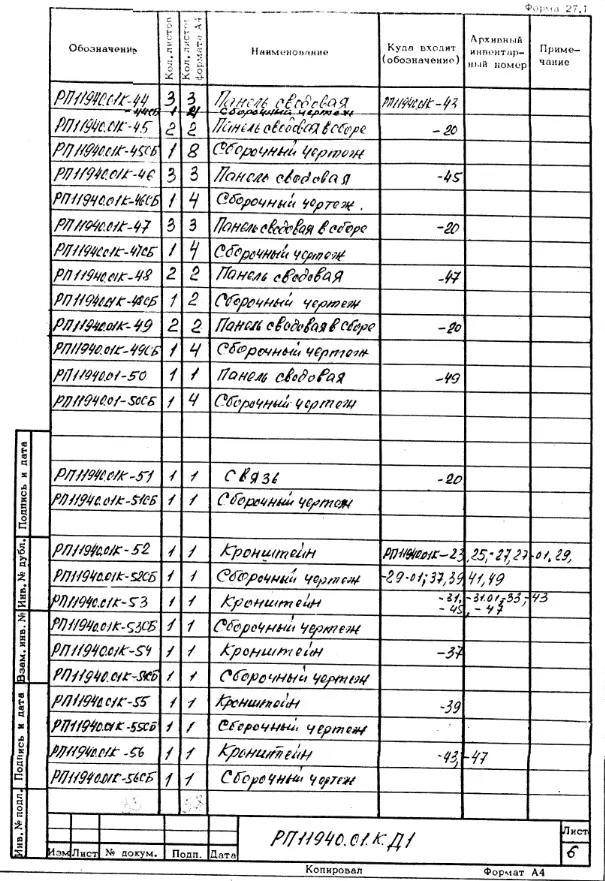 Форма 27.1
Обозначение Кол. листов Кол. листов формата А4 Наименование Куда входит (обозначение) Архивный инвентарный номер Примечание
РП11940.01К-44 3 3 Панель сводовая РП11940.01К-43
-44СБ 1 Сборочный чертеж
РП11940.01К-45 2 2 Панель сводовая в сборе -20
РП11940.01К-45СБ 1 8 Сборочный чертеж
РП11940.01К-46 3 3 Панель сводовая -45
РП11940.01К-46СБ 1 4 Сборочный чертеж.
РП11940.01К-47 3 3 Панель сводовая в сборе -20
РП11940.01К-47СБ 1 4 Сборочный чертеж
РП11940.01К-48 2 2 Панель сводовая -47
РП11940.01К-48СБ 1 2 Сборочный чертеж
РП11940.01К-49 2 2 Панель сводовая в сборе -20
РП11940.01К-49СБ 1 4 Сборочный чертеж
РП11940.01-50 1 1 Панель сводовая -49
РП11940.01-50СБ 1 4 Сборочный чертеж
РП11940.01К-51 1 1 Связь -20
РП11940.01К-51СБ 1 1 Сборочный чертеж
РП11940.01К-52 1 1 Кронштейн РП11940.01К-23,25,-27,27-01,29,
РП11940.01К-52СБ 1 1 Сборочный чертеж -29-01,37,39,41,49
РП11940.01К-53 1 1 Кронштейн -31,-31.01,-33,-43
-45, -47
РП11940.01К-53СБ 1 1 Сборочный чертеж
РП11940.01К-54 1 1 Кронштейн -37
РП11940.01К-54СБ 1 1 Сборочный чертеж
РП11940.01К-55 1 1 Кронштейн -39
РП11940.01К-55СБ 1 1 Сборочный чертеж
РП11940.01К-56 1 1 Кронштейн -43,-47
РП11940.01К-56СБ 1 1 Сборочный чертеж
Инв. № подл. Подпись и дата Взам. инв. № Инв. № дубл. Подпись и дата
РП11940.01.К.Д1
Лист
6
Изм Лист № докум. Подп. Дата
Копировал Формат А4